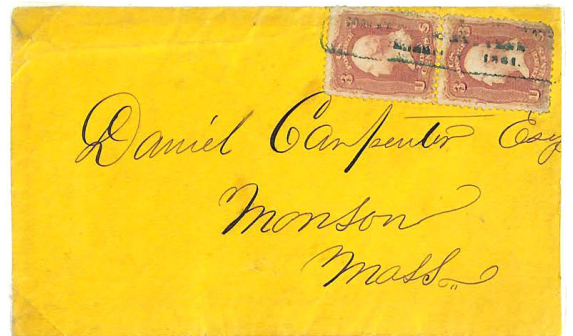 1861.
3 U 3 U
Daniel Carpenter Esq
Monson
Mass.